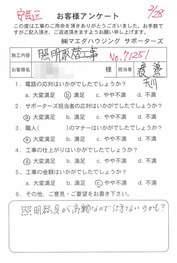 安芸区
7/28
お客様アンケート
この度は工事のご用命を頂きありがとうございました。お手数で
すがご記入頂き、ご返送頂きますようお願い申し上げます。
㈱マエダハウジング サポーターズ
施工内容 照明取替工事 No.71251
お客様名 担当者
1. 電話の応対はいかがでしたでしょうか?
a. 大変満足 b. 満足 c. やや不満 d. 不満
2. サポーターズ担当者の応対はいかがでしたでしょうか?
a. 大変満足 b. 満足 c. やや不満 d. 不満
3. 職人( )のマナーはいかがでしたでしょうか?
a. 大変満足 b. 満足 c. やや不満 d. 不満
4. 工事の仕上がりはいかがでしたでしょうか?
a. 大変満足 b. 満足 c. やや不満 d. 不満
5. 工事の金額はいかがでしたでしょうか?
a. 大変満足 b. 満足 c. やや不満 d. 不満
6. その他、ご意見・ご要望をお聞かせ下さい。
照明器具が高額なので仕方ないのかも?